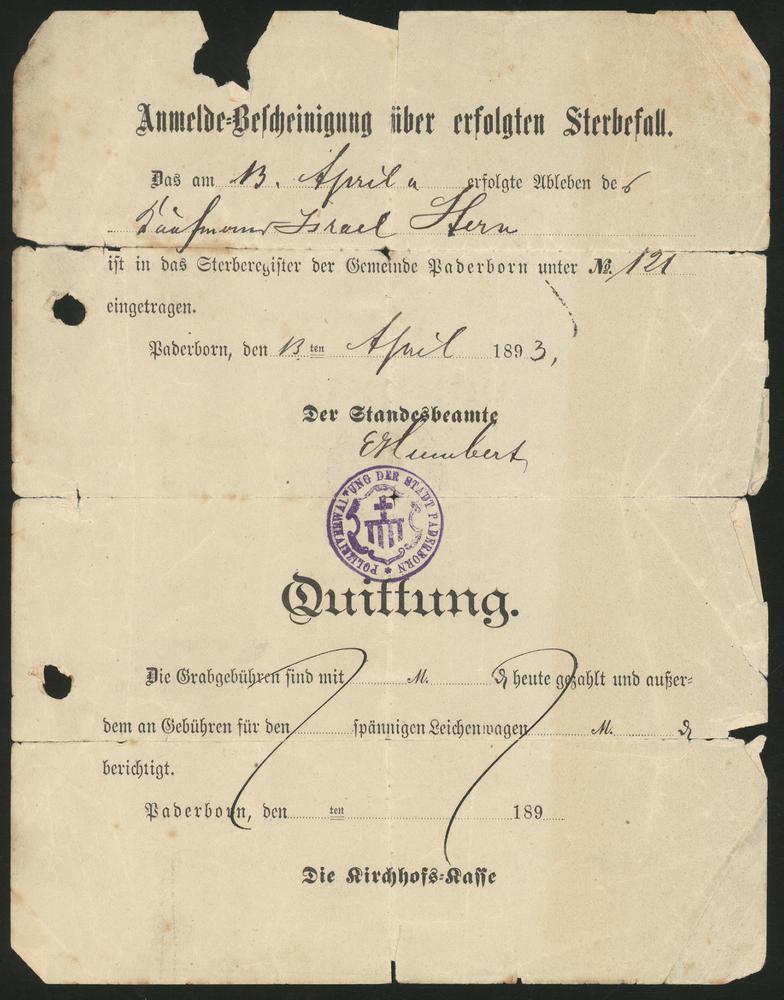 Anmelde-Bescheinigung über erfolgten Sterbefall.
Das am 13. April erfolgte Ableben des
Kaufmanns Israel Stern
ist in das Sterberegister der Gemeinde Paderborn unter No. 121
eingetragen.
Paderborn, den 13 ten April 1893,
Der Standesbeamte
Humbert
POLIZEIVERWALTUNG DER STADT PADERBORN *
Quittung.
Die Grabgebühren sind mit M. ₰ heute gezahlt und außer-
dem an Gebühren für den spännigen Leichenwagen M. ₰
berichtigt.
Paderborn, den ten 189
Die Kirchhofs-Kasse